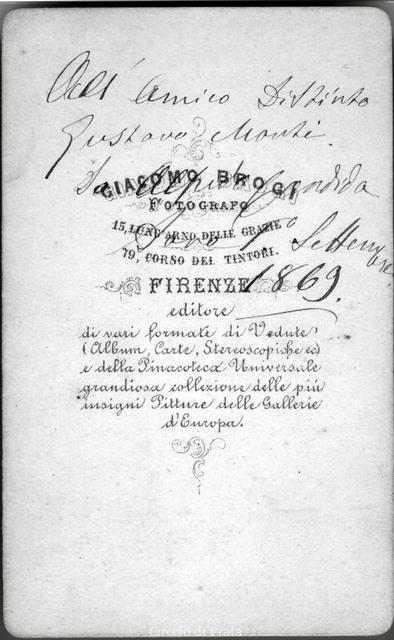 All' Amico Distinto
Gustavo Monti
GIACOMO BROGI
FOTOGRAFO
15, LUNG'ARNO DELLE GRAZIE
79, CORSO DEI TINTORI.
Settembre
FIRENZE 1869.
editore
di vari formati di Vedute
(Album, Carte, Stereoscopiche ec)
e della Pinacoteca Universale
grandiosa collezione delle più
insigni Pitture delle Gallerie
d'Europa.
Circolo di Prata